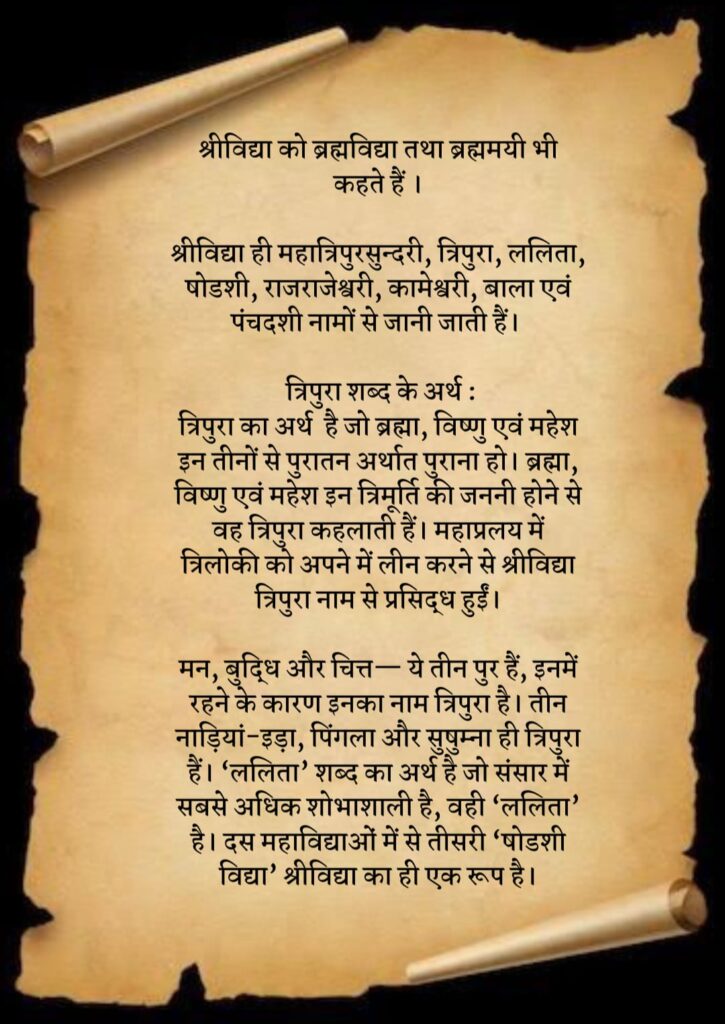 श्रीविद्या को ब्रह्मविद्या तथा ब्रह्ममयी भी
कहते हैं ।
श्रीविद्या ही महात्रिपुरसुन्दरी, त्रिपुरा, ललिता,
षोडशी, राजराजेश्वरी, कामेश्वरी, बाला एवं
पंचदशी नामों से जानी जाती हैं।
त्रिपुरा शब्द के अर्थ :
त्रिपुरा का अर्थ  है जो ब्रह्मा, विष्णु एवं महेश
इन तीनों से पुरातन अर्थात पुराना हो। ब्रह्मा,
विष्णु एवं महेश इन त्रिमूर्ति की जननी होने से
वह त्रिपुरा कहलाती हैं। महाप्रलय में
त्रिलोकी को अपने में लीन करने से श्रीविद्या
त्रिपुरा नाम से प्रसिद्ध हुईं।
मन, बुद्धि और चित्त— ये तीन पुर हैं, इनमें
रहने के कारण इनका नाम त्रिपुरा है। तीन
नाड़ियां-इड़ा, पिंगला और सुषुम्ना ही त्रिपुरा
हैं। ‘ललिता’ शब्द का अर्थ है जो संसार में
सबसे अधिक शोभाशाली है, वही ‘ललिता’
है। दस महाविद्याओं में से तीसरी ‘षोडशी
विद्या’ श्रीविद्या का ही एक रूप है।